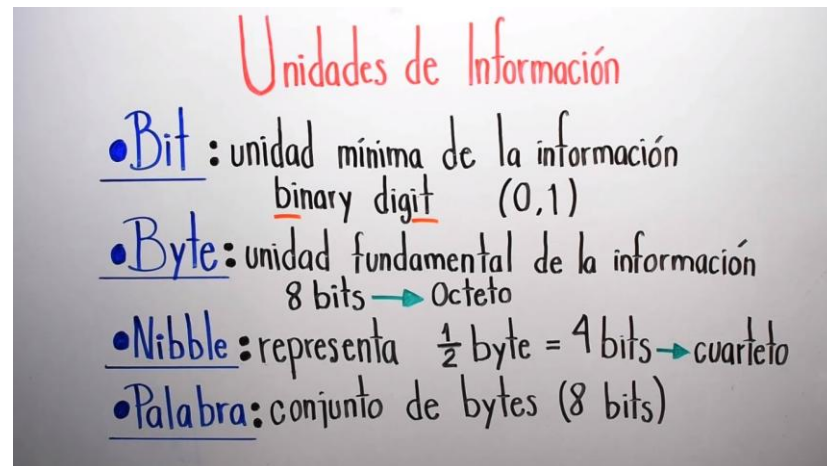 Unidades de Información
•Bit: unidad mínima de la información
binary digit (0,1)
•Byte: unidad fundamental de la información
8 bits → Octeto
•Nibble: representa ½ byte = 4 bits → cuarteto
•Palabra: conjunto de bytes (8 bits)